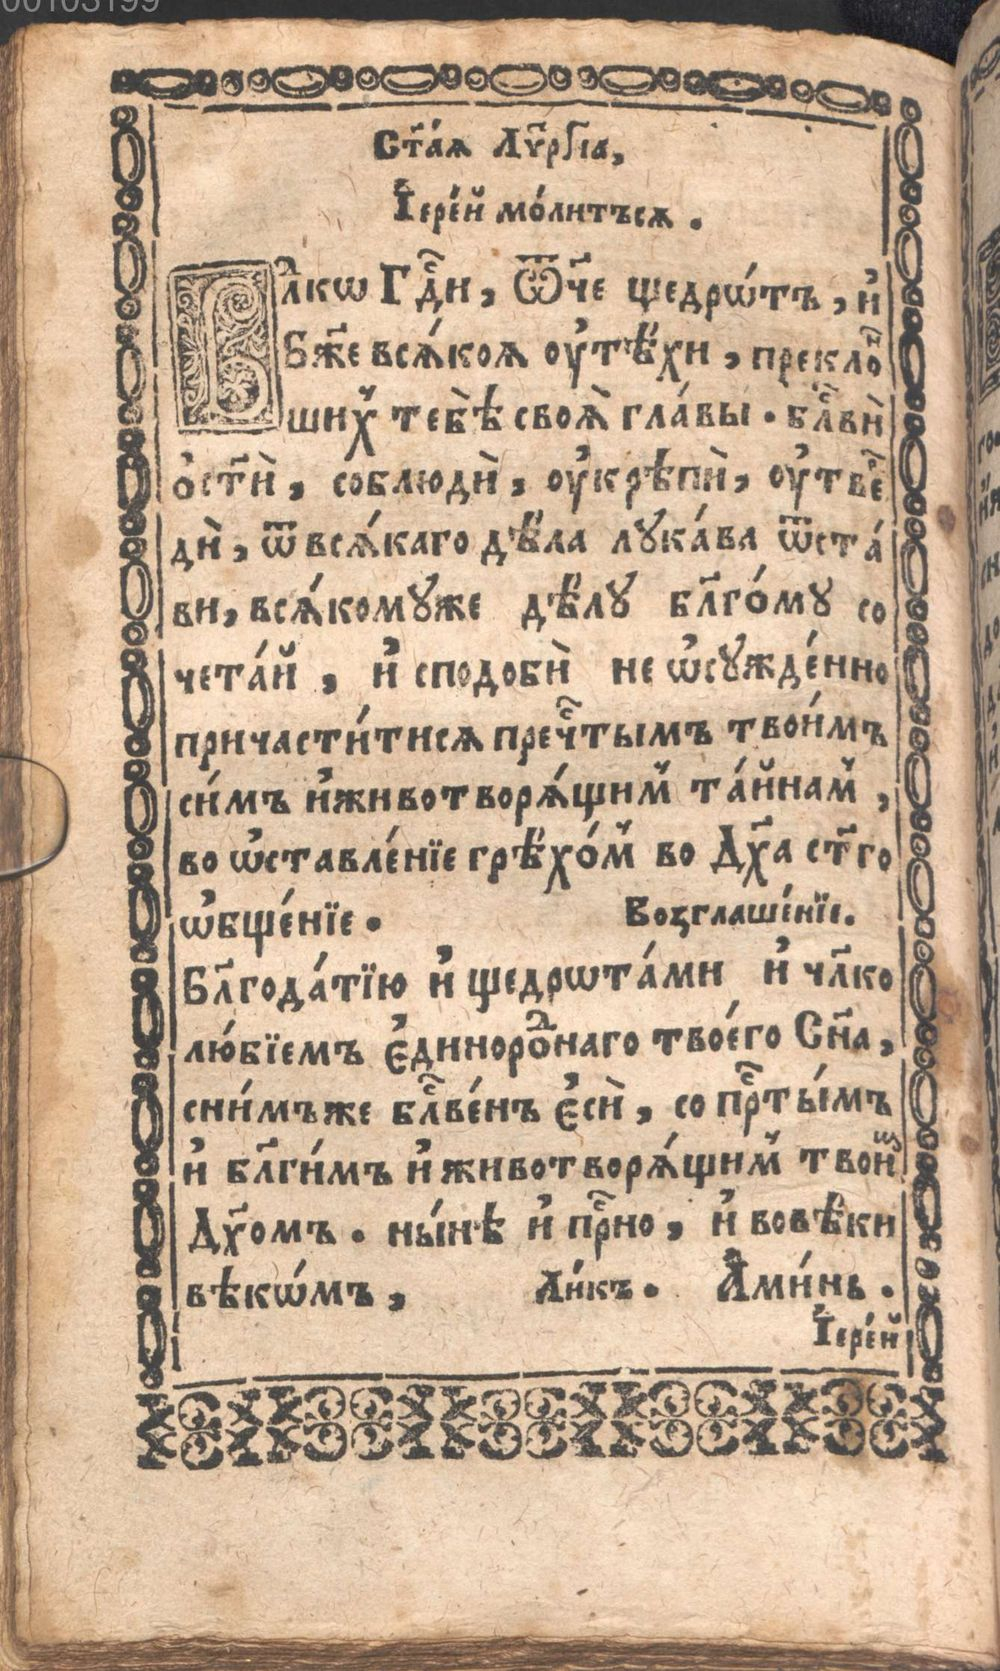 00103199
Ст҃а́ѧ Лѵ҃рг҃іа,
І҆ере́й мо́литъсѧ.
Влⷣкѡ Гдⷭ҇и, Ѿч҃е щедрѡ́тъ, и҆
Бж҃е всѧ́коѧ ᲂу҆тѣ́хи, преклоⷩ҇
шиⷯ тебѣ̀ своѧ̀ гла́вы. блⷭ҇ви̑
ѡ҆ст҃и̑, соблюдѝ, ᲂу҆крѣпѝ, ᲂу҆твеⷬ҇
дѝ, ѿ всѧ́каго дѣ́ла лꙋка́ва ѿста́
ви, всѧ́комꙋже дѣ́лꙋ бл҃го́мꙋ со
чета́й, и҆ сподобѝ не ѡ҆сꙋжде́нно
причасти́тисѧ пречⷭ҇тымъ твои́мъ
си́мъ и҆животворѧ́щиⷨ та́йнаⷨ,
во ѡ҆ставле́нїе грѣхо́ⷨ во Дх҃а ст҃го
ѡ҆бще́нїе. Возглаше́нїе.
Бл҃года́тїю и҆ щедрѡта́ми и҆ чл҃ко
лю́бїемъ є҆диноро́ⷣнаго твоего Сн҃а,
сни́мъже блⷭ҇ве́нъ є҆сѝ, со прⷭ҇ты́мъ
и҆ бл҃ги́мъ и҆животворѧ́щиⷨ твои́ⷨ
Дх҃омъ. ны́нѣ и҆ прⷭ҇но, и҆ вовѣ́ки
вѣкѡ́мъ, Ли́къ. А҆ми́нь.
І҆ере́й